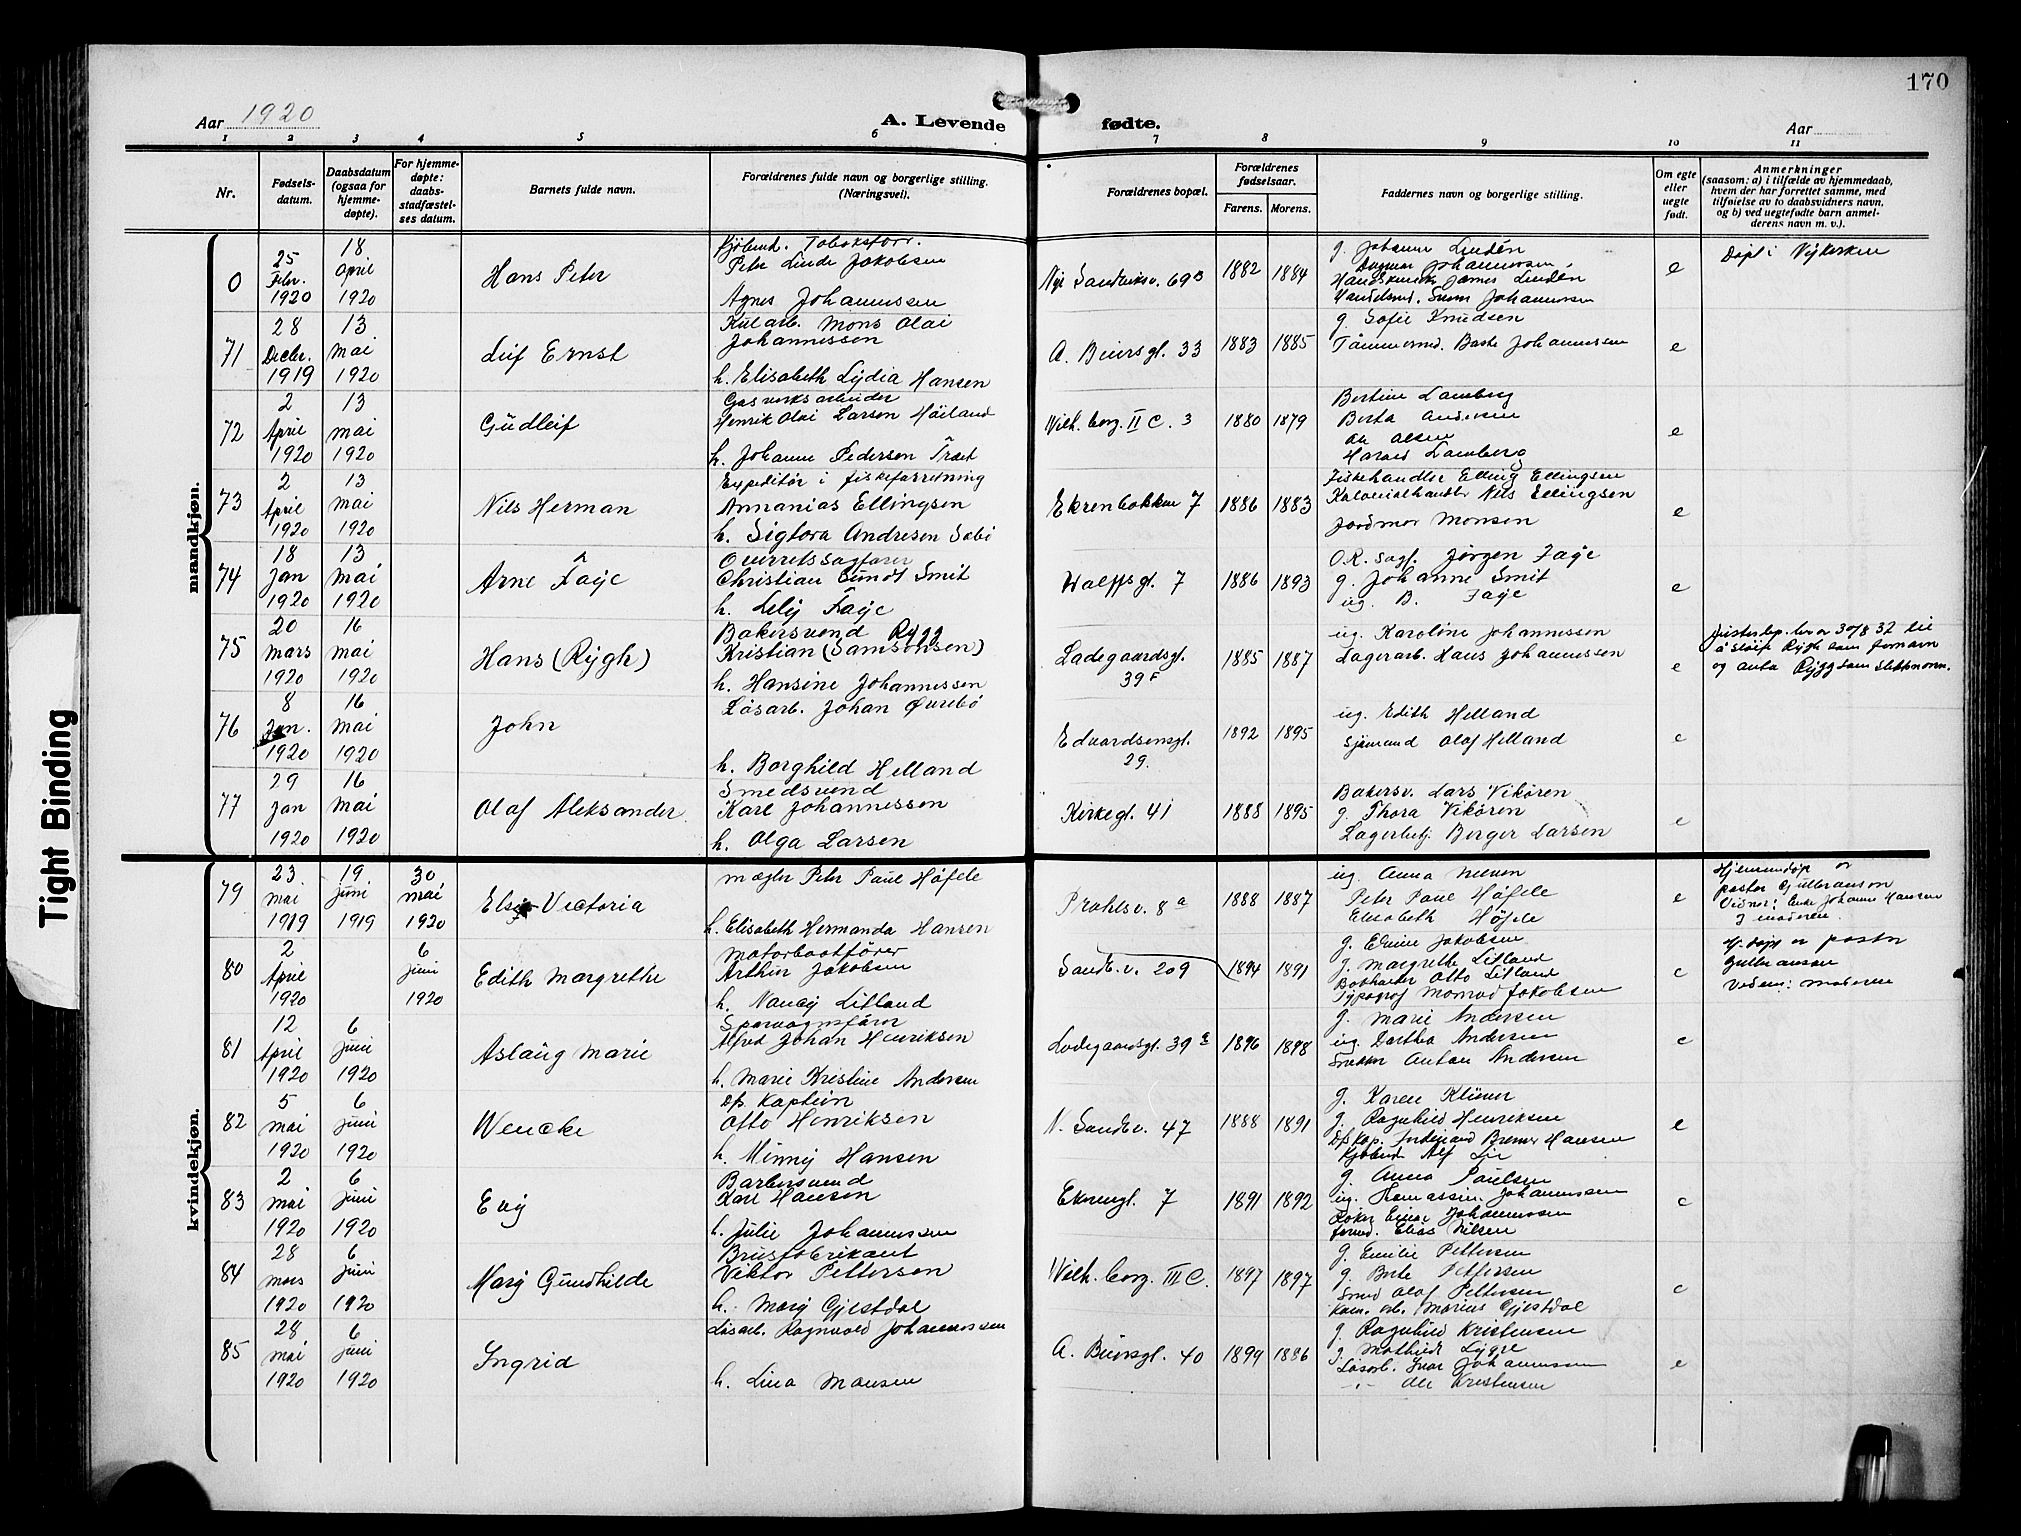 170
Aar 1920
A. Levende fødte.
Aar
1 2 3 4 5 6 7 8 9 10 11
Nr.
Fødsels-
datum.
Daabsdatum
(ogsaa for
hjemme-
døpte).
For hjemme-
døpte:
daabs-
stadfæstel-
ses datum.
Barnets fulde navn.
Forældrenes fulde navn og borgerlige stilling.
(Næringsvei).
Forældrenes bopæl.
Forældrenes
fødselsaar.
Farens. Morens.
Faddernes navn og borgerlige stilling.
Om egte
eller
uegte
født.
Anmerkninger
(saasom: a) i tilfælde av hjemmedaab,
hvem der har forrettet samme, med
tilføielse av to daabsvidners navn,
og b) ved uegtefødte barn anmel-
derens navn m. v.).
mandkjøn.
0
25 Febr. 1920
18 April 1920
Hans Peter
Kjøbmd. Tobaksforr.
Peter Linde Jakobsen
Agnes Johannessen
Nye Sandviksv. 69 B
1882 1884
g. Johanne Lindén
Dagmar Johannessen
James Lindén
Johannessen
e
Døpt i Nykirken
71
28 Decbr. 1919
13 Mai 1920
Leif Ernst
Kularb. Mons Olai
Johannessen
h. Elisabeth Lydia Hansen
A. Beiersgt. 33
1883 1885
g. Sofie Knudsen
Tømmermd. Johannessen
e
72
2 April 1920
13 Mai 1920
Gudleif
Gasverksarbeider
Henrik Olai Larsen Høiland
h. Johanne Pedersen Træet
Wilh. borg. II C. 3
1880 1879
Bertine Lamberg
Berta Andersen
Olsen
Harald Lamberg
e
73
2 April 1920
13 Mai 1920
Nils Herman
Expeditør i fiskeforretning
Annanias Ellingsen
h. Sigtora Andresen Sæbø
Ekrenbakken 7
1886 1883
Fiskehandler Elling Ellingsen
Kolonialhandler Nils Ellingsen
Jordmor Monsen
e
74
18 Jan 1920
13 Mai 1920
Arne Faye
Overretssagfører
Christian Gundt Smit
h. Lely Faye
Wolffsgt. 7
1886 1893
O.R. Sagf. Jørgen Faye
g. Johanne Smit
ug. B. Faye
e
75
20 Mars 1920
16 Mai 1920
Hans (Rygh)
Bakersvend Rygg
Kristian (Samsonsen)
h. Hansine Johannessen
Ladegaardsgt.
39 F
1885 1887
ug. Karoline Johannessen
Lagerarb. Hans Johannessen
e
Justisdep. bev. av 30/8 32 til
å sløife Rygh som fornavn
og anta Rygg som slektsnavn.
76
8 Jan. 1920
16 Mai 1920
John
Løsarb. Johan Øvrebø
h. Borghild Helland
Edvardsensgt.
29.
1892 1895
ug. Edith Helland
Sjømand Olaf Helland
e
77
29 Jan 1920
16 Mai 1920
Olaf Aleksander
Smedsvend
Karl Johannessen
h. Olga Larsen
Kirkegt. 41
1888 1895
Bakersv. Lars Vikøren
g. Thora Vikøren
Lagerbetj. Berger Larsen
e
kvindekjøn.
79
23 Mai 1919
19 Juni 1919
30 Mai 1920
Else Victoria
Mægler Peter Paul Høfele
h. Elisabeth Hermanda Hansen
Prahlsv. 8 a
1888 1887
ug. Anna
Peter Paul Høfele
Elisabeth Høfele
e
Hjemmedøpt av
pastor Gulbranson
Vidner: Enke Johanne Hansen
og moderen.
80
2 April 1920
6 Juni 1920
Edith Margrethe
Motorbaatfører
Arthur Jakobsen
h. Nancy Litland
Sandv.v. 209
1894 1891
g. Jakobsen
g. Margrethe Litland
Otto Litland
Typograf Monrad Jakobsen
e
Hj. døpt av pastor
Gulbranson
Vidne: Moderen
81
12 April 1920
6 Juni 1920
Aslaug Marie
Sporvognsfører
Alfred Johan Henriksen
h. Marie Kristine Andersen
Ladegaardsgt. 39
1896 1898
g. Marie Andersen
ug. Dorthea Andersen
Snekker Anton Andersen
e
82
5 Mai 1920
6 Juni 1920
Wencke
D/s. Kaptein
Otto Henriksen
h. Minny Hansen
N. Sandv.v. 47
1888 1891
g. Karen
g. Ragnhild Henriksen
D/s Kap. Hansen
Kjøbmd. Alf Lie
e
83
2 Mai 1920
6 Juni 1920
Evy
Barbersvend
Karl Hansen
h. Julie Johannessen
Ekrengt. 7
1891 1892
g. Anna Paulsen
ug. Johannessen
Einar Johannessen
Elias Nilsen
e
84
28 Mars 1920
6 Juni 1920
Mary Gundhilde
Brusfabrikant
Viktor Pettersen
h. Mary Gjestdal
Wilh. borg. III C.
1897 1897
g. Emilie Pettersen
g. Berte Pettersen
Smed Olaf Pettersen
Kom. arb. Marius Gjestdal
e
85
28 Mai 1920
6 Juni 1920
Ingrid
Løsarb. Ragnvald Johannessen
h. Lina Monsen
A. Beiersgt. 40
1894 1886
g. Ragnhild Kristensen
g. Mathilde Lygre
Løsarb. Ivar Johannessen
-"- Ole Kristensen
e
Tight Binding